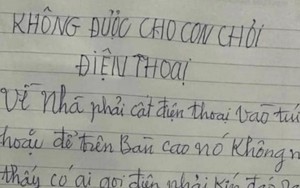 KHÔNG ĐƯỢC CHO CON CHƠI
ĐIỆN THOẠI
Về Nhà phải cất điện thoại vào tủ
hoặc để trên Bàn cao nó không
thấy có ai gọi điện phải